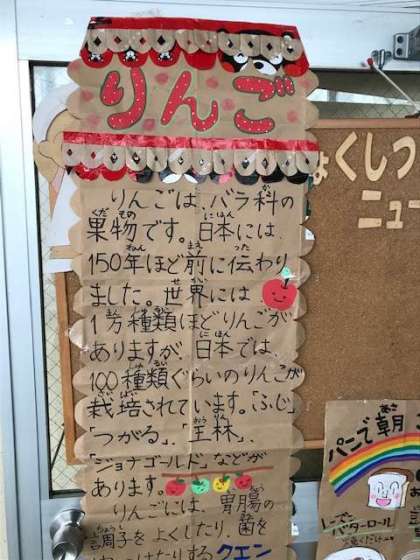 りんご
りんごは、バラ科の
果物です。日本には、
150年ほど前に伝わり
ました。世界には
1万種類ほどりんごが
ありますが、日本では、
100種類ぐらいのりんごが
栽培されています。「ふじ」
「つがる」、「王林」、
「ジョナゴールド」などが
あります。
りんごには、胃腸の
調子をよくしたり、菌を
たりする クエン
ょくしつ
ニュー
パンで朝
レーズン
バターロール